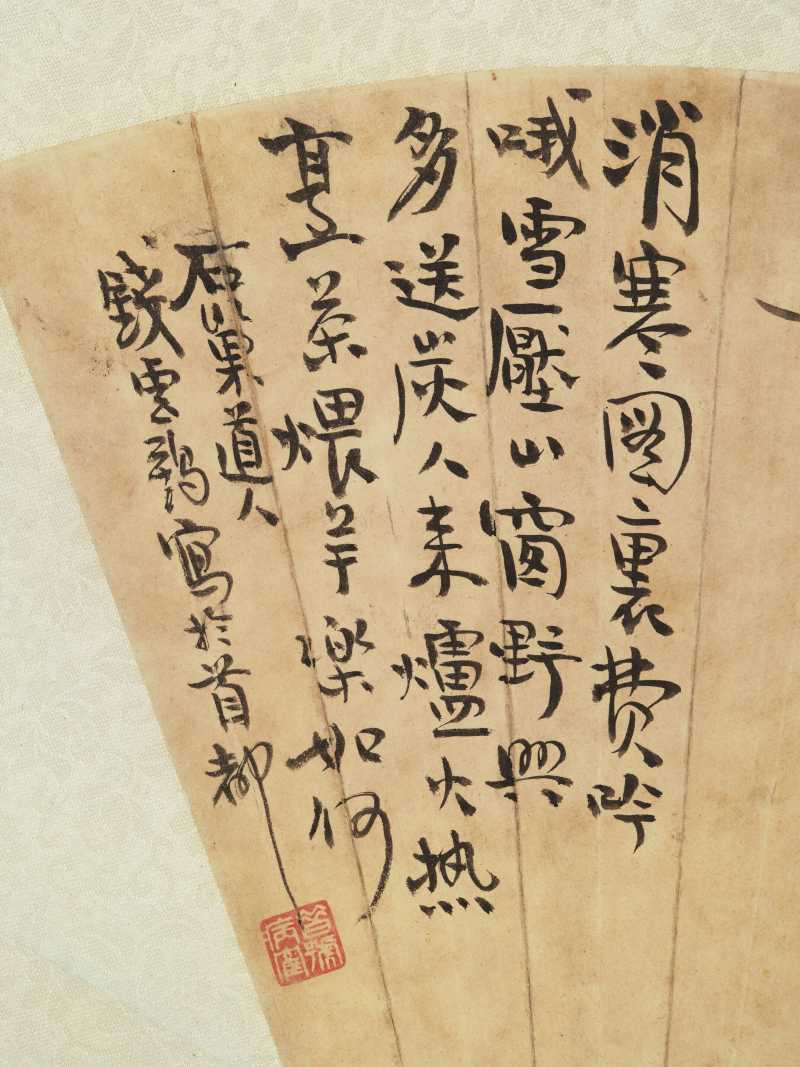 消寒图裏費吟
哦雪壓山窗野興
多送炭人来爐火热
烹茶煨芋樂如何
石巢道人
錢雲鶴寫於首都
曾號
病鶴